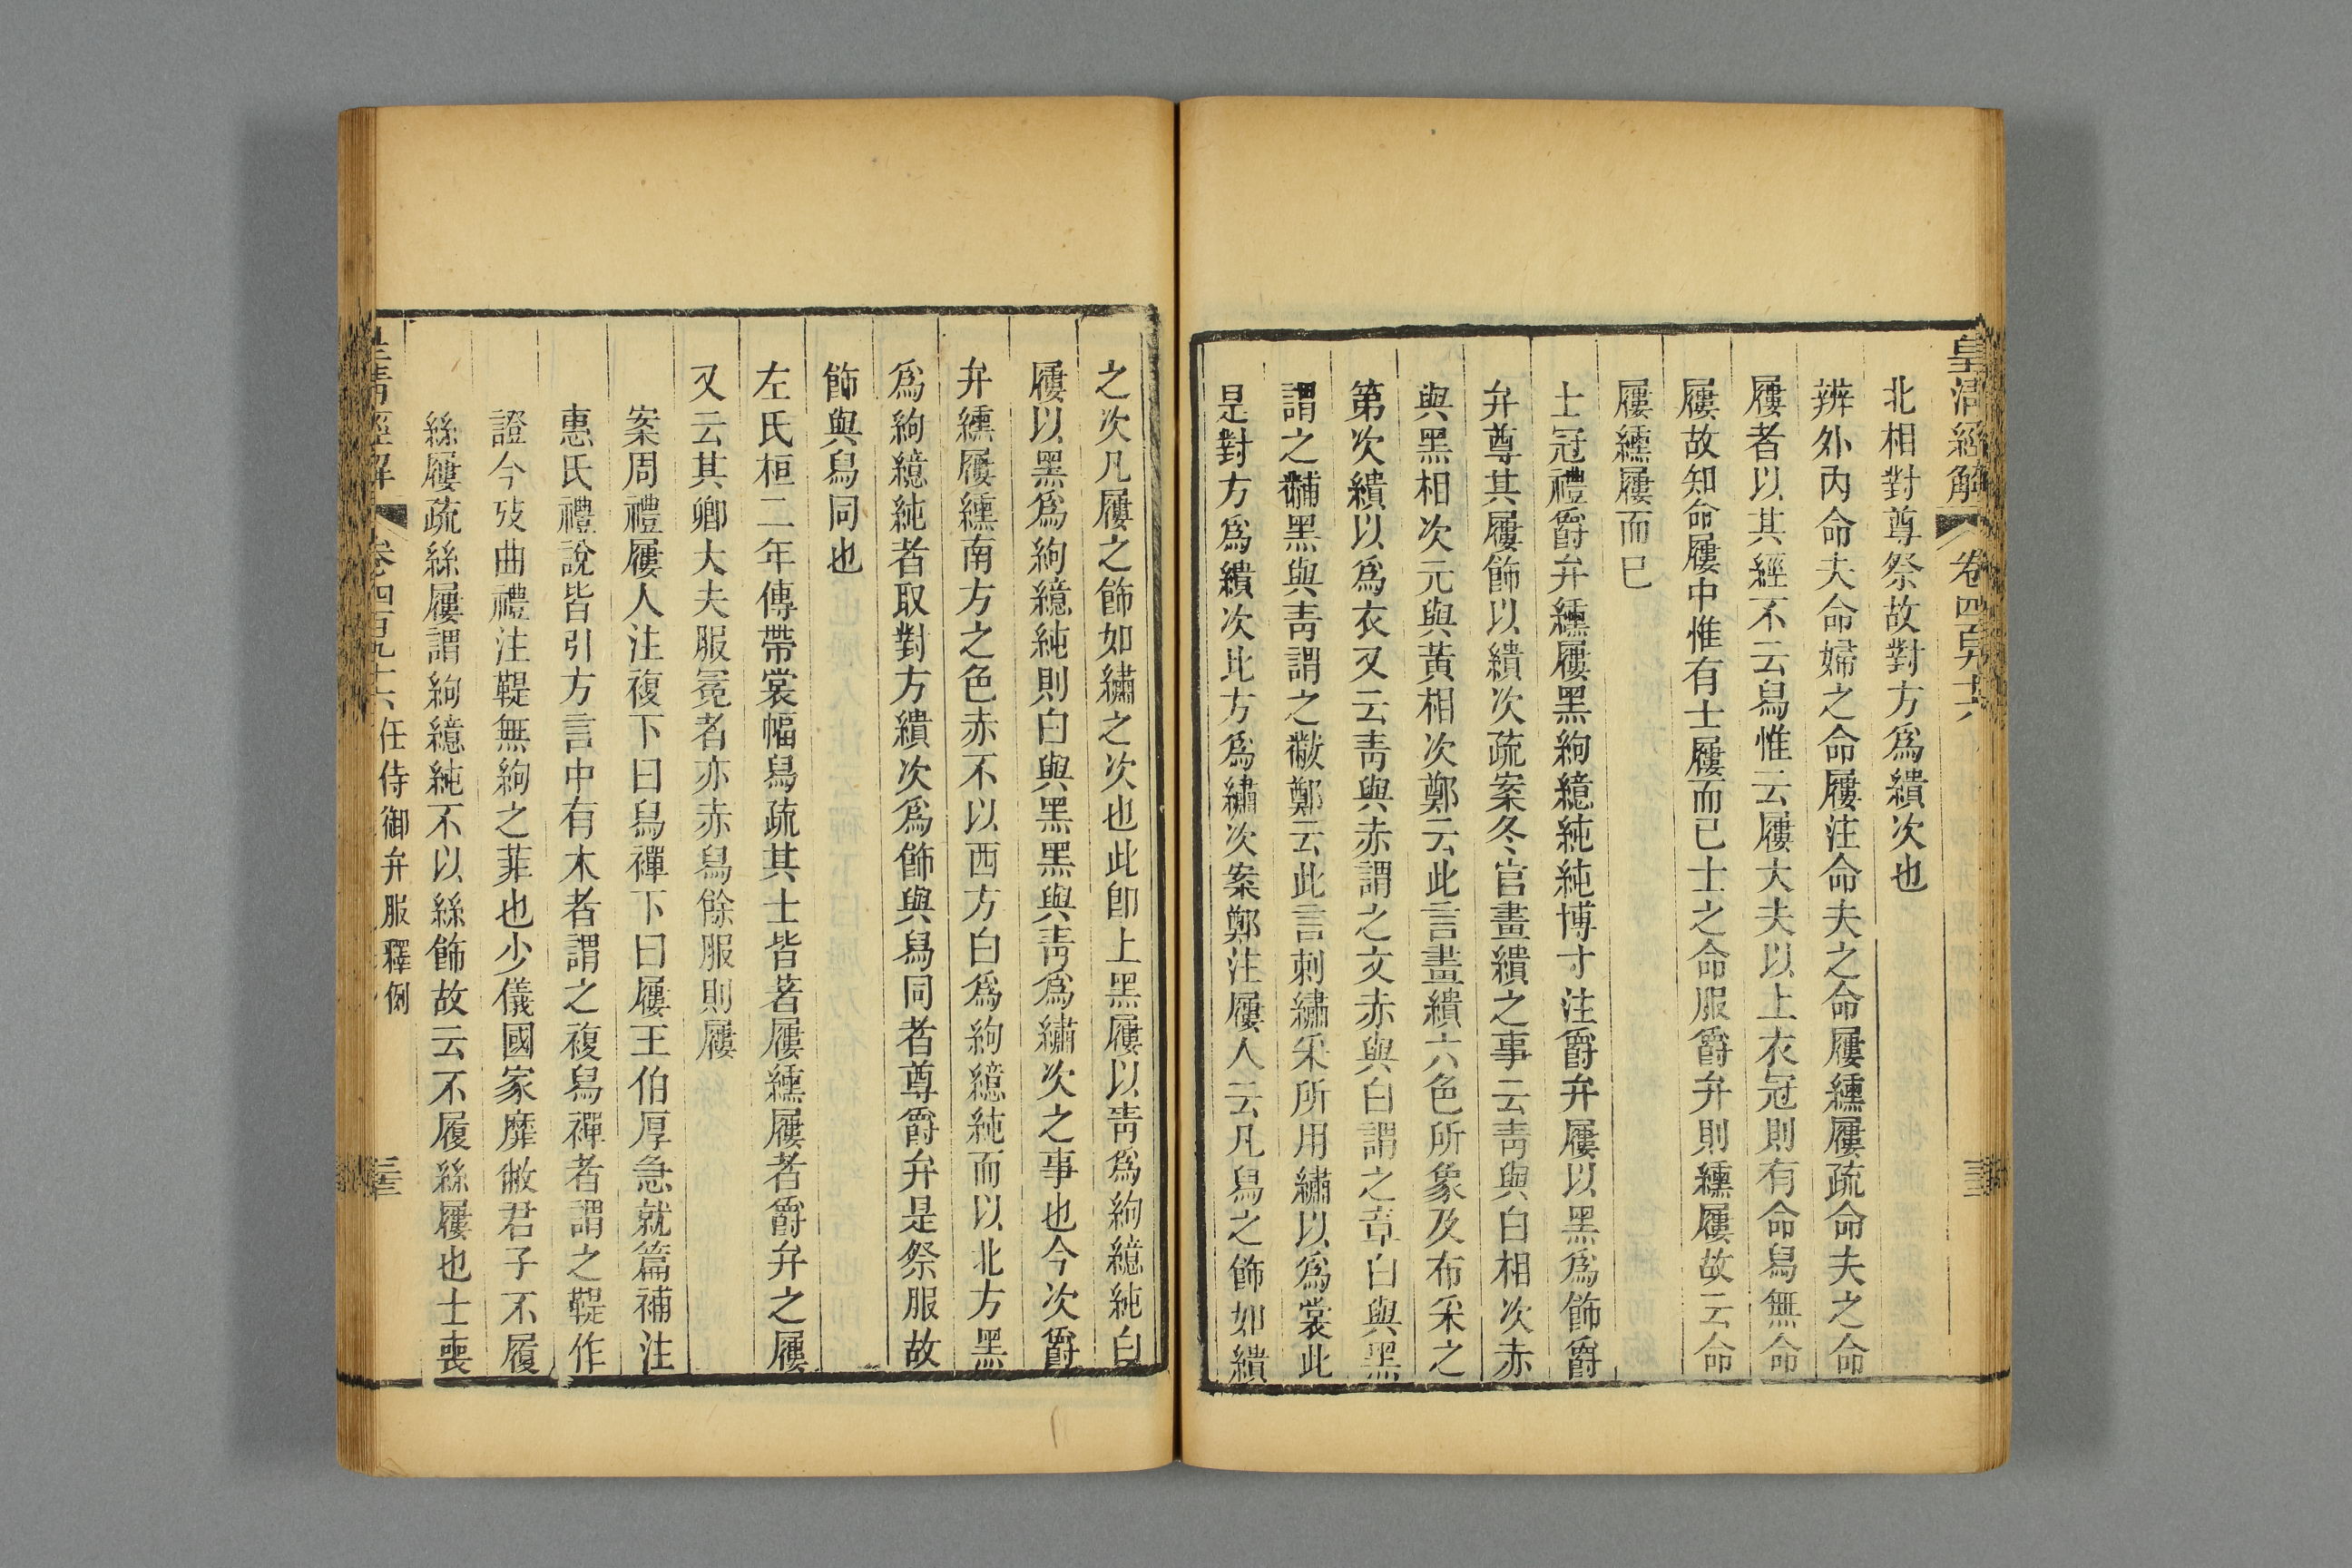 皇清經解 卷四百九十六
北相對尊祭故對方爲繢次也
辨外內命夫命婦之命屨注命夫之命屨纁屨疏命夫之命
屨者以其經不云舄惟云屨大夫以上衣冠則有命舄無命
屨故知命屨中惟有士屨而已士之命服爵弁則纁屨故云命
屨纁屨而已
士冠禮爵弁纁屨黑絇繶純純博寸注爵弁屨以黑爲飾爵
弁尊其屨飾以繢次疏案冬官畫繢之事云靑與白相次赤
與黑相次元與黃相次鄭云此言畫繢六色所象及布采之
第次繢以爲衣又云靑與赤謂之文赤與白謂之章白與黑
謂之黼黑與靑謂之黻鄭云此言刺繡采所用繡以爲裳此
是對方爲繢次比方爲繡次案鄭注屨人云凡舄之飾如繢
之次凡屨之飾如繡之次也此卽上黑屨以靑爲絇繶純白
屨以黑爲絇繶純則白與黑黑與靑爲繡次之事也今次爵
弁纁屨纁南方之色赤不以西方白爲絇繶純而以北方黑
爲絇繶純者取對方繢次爲飾與舄同者尊爵弁是祭服故
飾與舄同也
左氏桓二年傳帶裳幅舄疏其士皆著屨纁屨者爵弁之屨
又云其卿大夫服冕者亦赤舄餘服則屨
案周禮屨人注複下曰舄禪下曰屨王伯厚急就篇補注
惠氏禮說皆引方言中有木者謂之複舄禪者謂之鞮作
證今攷曲禮注鞮無絇之菲也少儀國家靡敝君子不履
絲屨疏絲屨謂絇繶純不以絲飾故云不履絲屨也士喪
皇清經解 卷四百九十六 任侍御弁服釋例